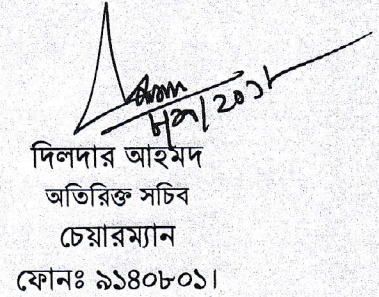 দিলদার আহমদ
অতিরিক্ত সচিব
চেয়ারম্যান
ফোনঃ ৯১৪০৮০১।